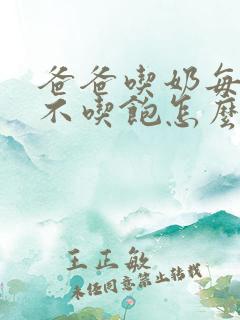 爸爸喫奶每
不喫飽怎麼
王正敏
未经同意禁止转载